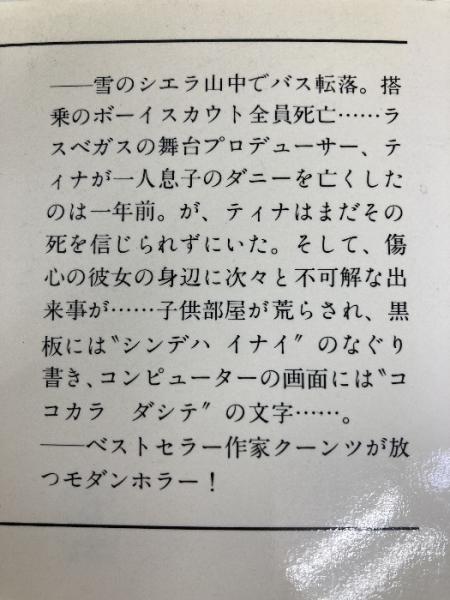 ——雪のシエラ山中でバス転落。搭
乗のボーイスカウト全員死亡……ラ
スベガスの舞台プロデューサー、テ
ィナが一人息子のダニーを亡くした
のは一年前。が、ティナはまだその
死を信じられずにいた。そして、傷
心の彼女の身辺に次々と不可解な出
来事が……子供部屋が荒らされ、黒
板には〝シンデハ イナイ〟のなぐり
書き、コンピューターの画面には〝コ
コカラ ダシテ〟の文字……。
——ベストセラー作家クーンツが放
つモダンホラー！